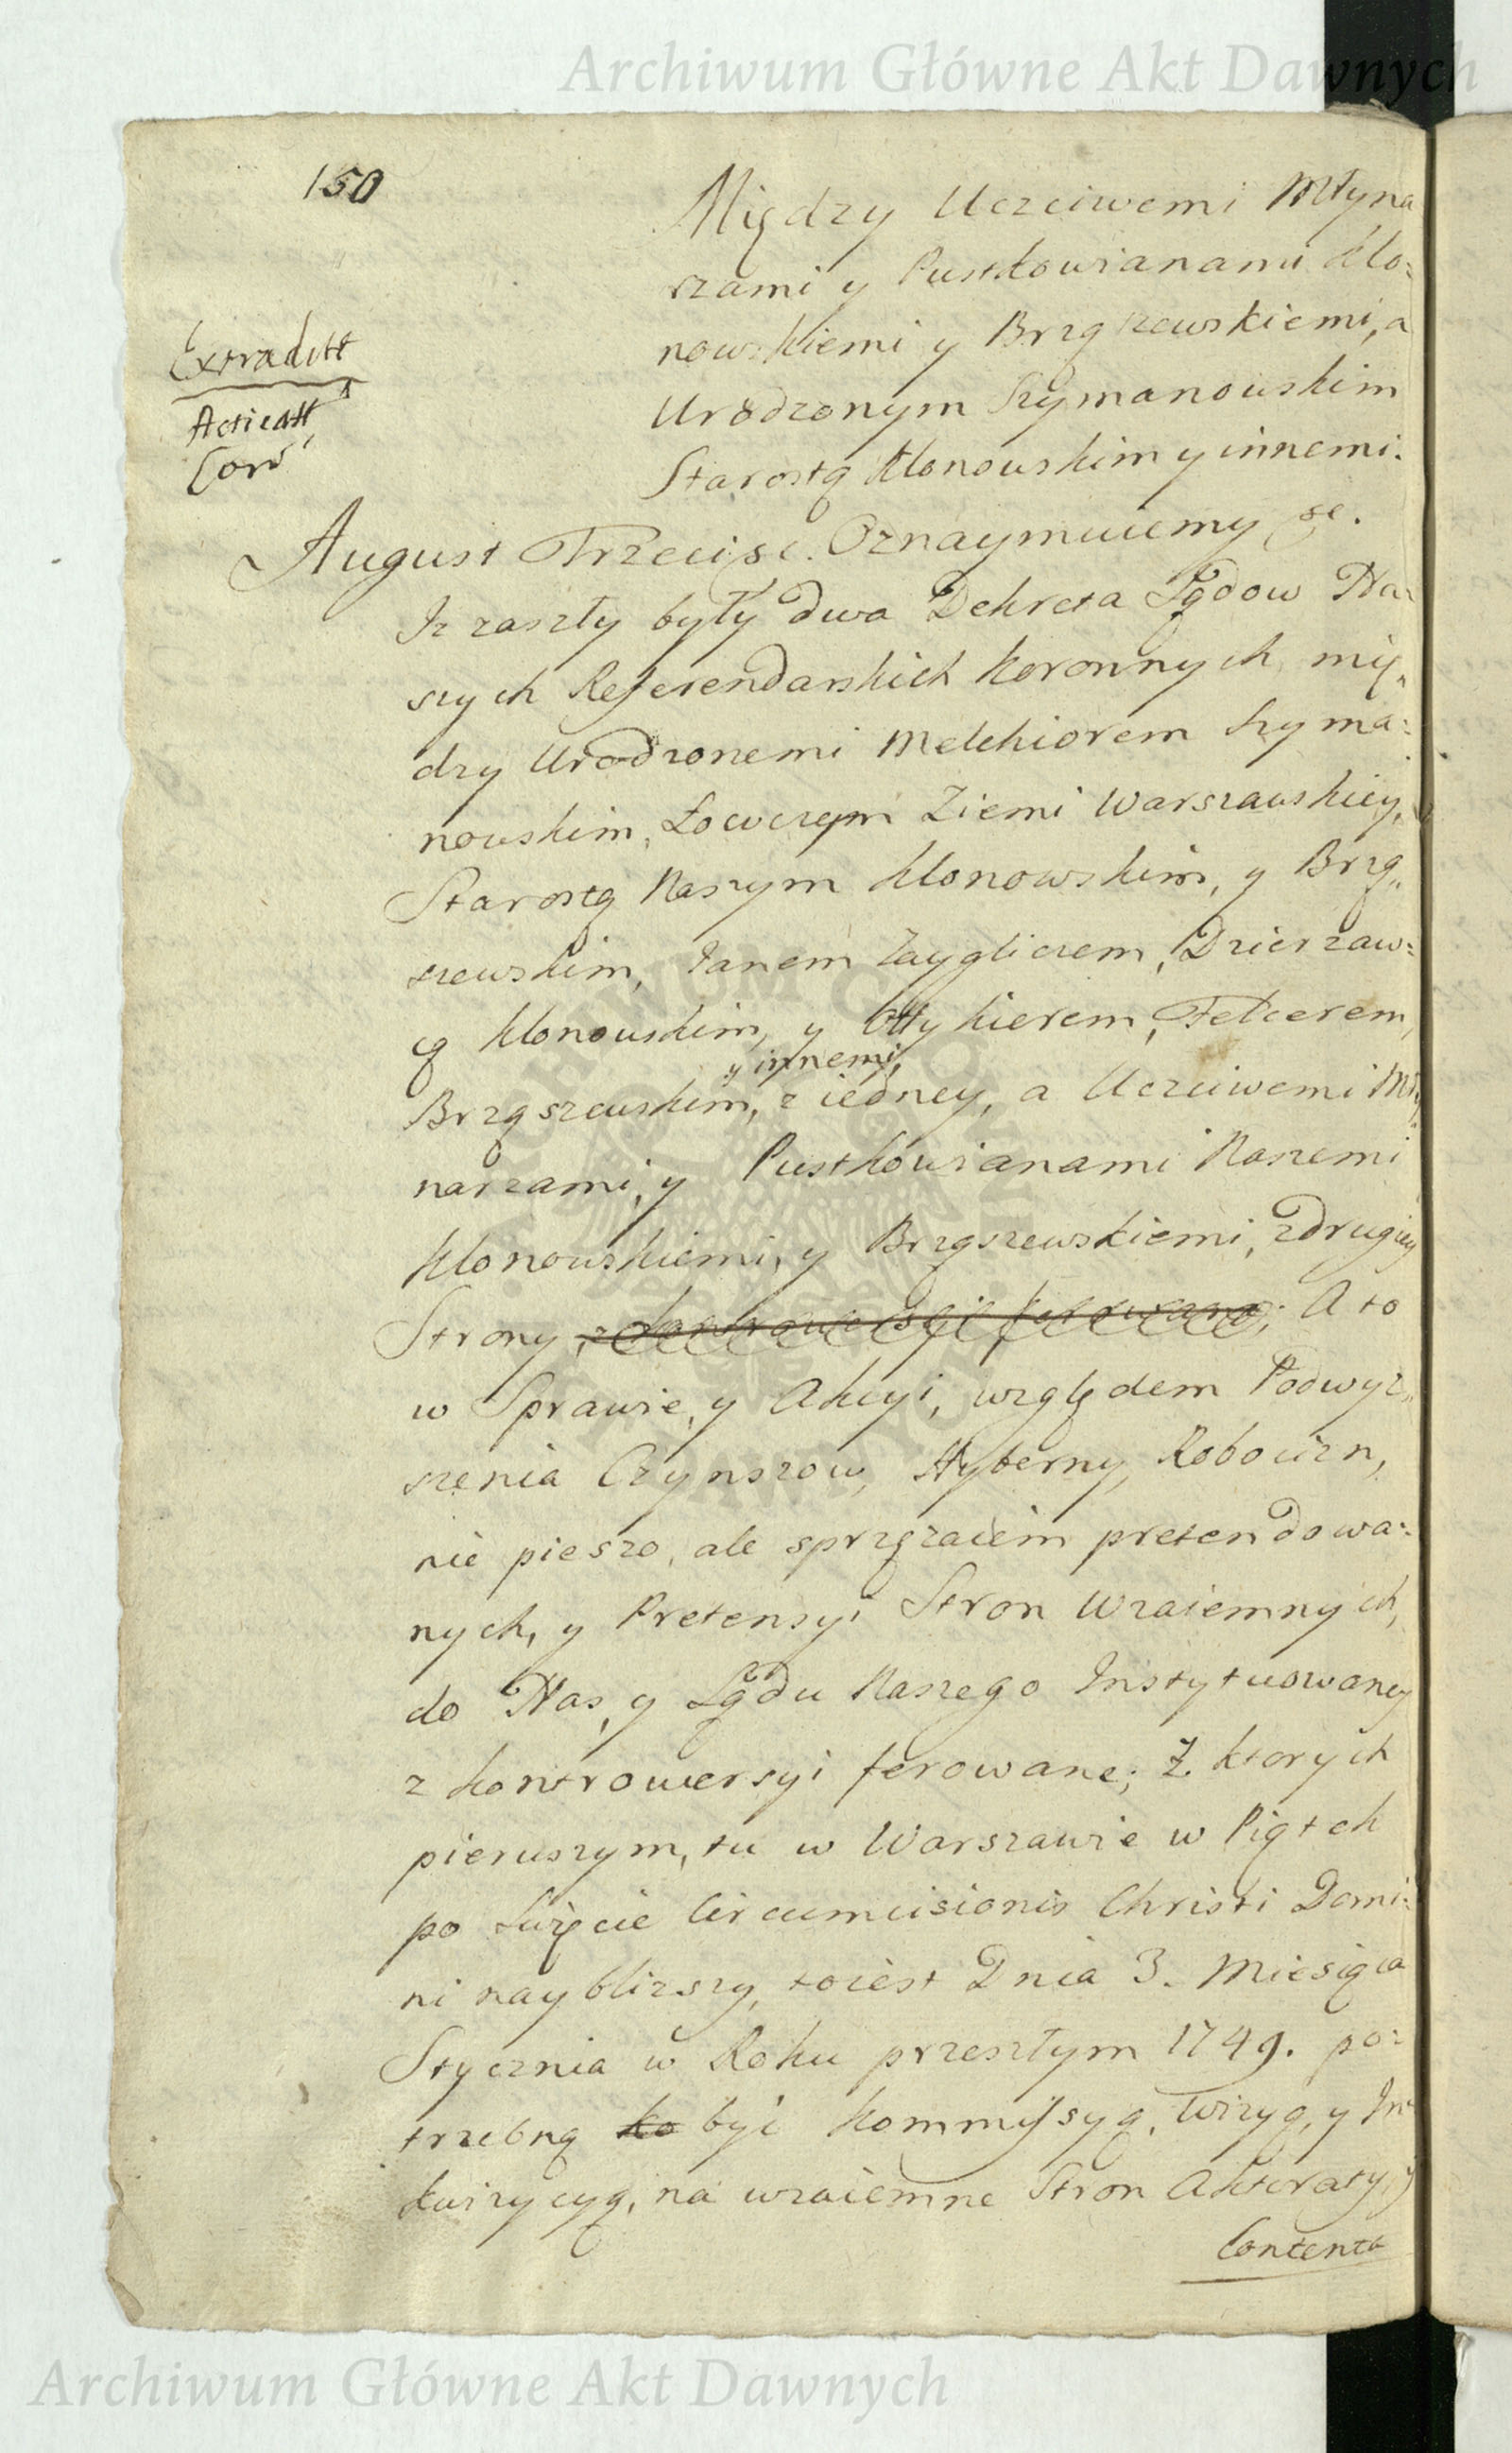 Archiwum Główne Akt Dawnych
150
Między Uczciwemi Młyna
rzami y Pustkowianami Klo:
nowskiemi y Brząszewskiemi, a
Urodzonym Szymanowskim
Starostą Klonowskim y innemi.
Extraditt
Acticatt
Corr
August Trzeci &c. Oznaymuiemy &c.
Iz zaszły były dwa Dekreta Sądow Na:
szych Referendarskich Koronnych, mię„
dzy Urodzonemi Melchiorem Szyma:
nowskim, Łowczym Ziemi Warszawskiey,
Starostą Naszym Klonowskim, y Brzą„
szewskim, Janem Zayglicem, Dzierzaw:
cą Klonowskim, y Ottykierem, Felcerem,
y innemi,
Brząszewskim, z iedney, a Uczciwemi Mły„
narzami, y Pustkowianami Naszemi
Klonowskiemi, y Brząszewskiemi, z drugiey
Strony, z kontrowersyi ferowane; A to
w Sprawie, y Akcyi, względem Podwyz„
szenia Czynszow, Hyberny, Robocizn,
nie pieszo, ale sprzęzaiem pretendowa:
nych, y Pretensyi Stron Wzaiemnych,
do Nas, y Sądu Naszego Instytuowaney
z kontrowersyi ferowane; Z ktorych
pierwszym, tu w Warszawie w Piątek
po Swięcie Circumcisionis Christi Domi:
ni nayblizszy, toiest Dnia 3. Miesiąca
Stycznia w Roku przeszłym 1749. po:
trzebną ko być Kommissyą, Wizyą, y In:
kwizycyą, na wzaiemne Stron Akteraty, y
Contenta
Archiwum Główne Akt Dawnych